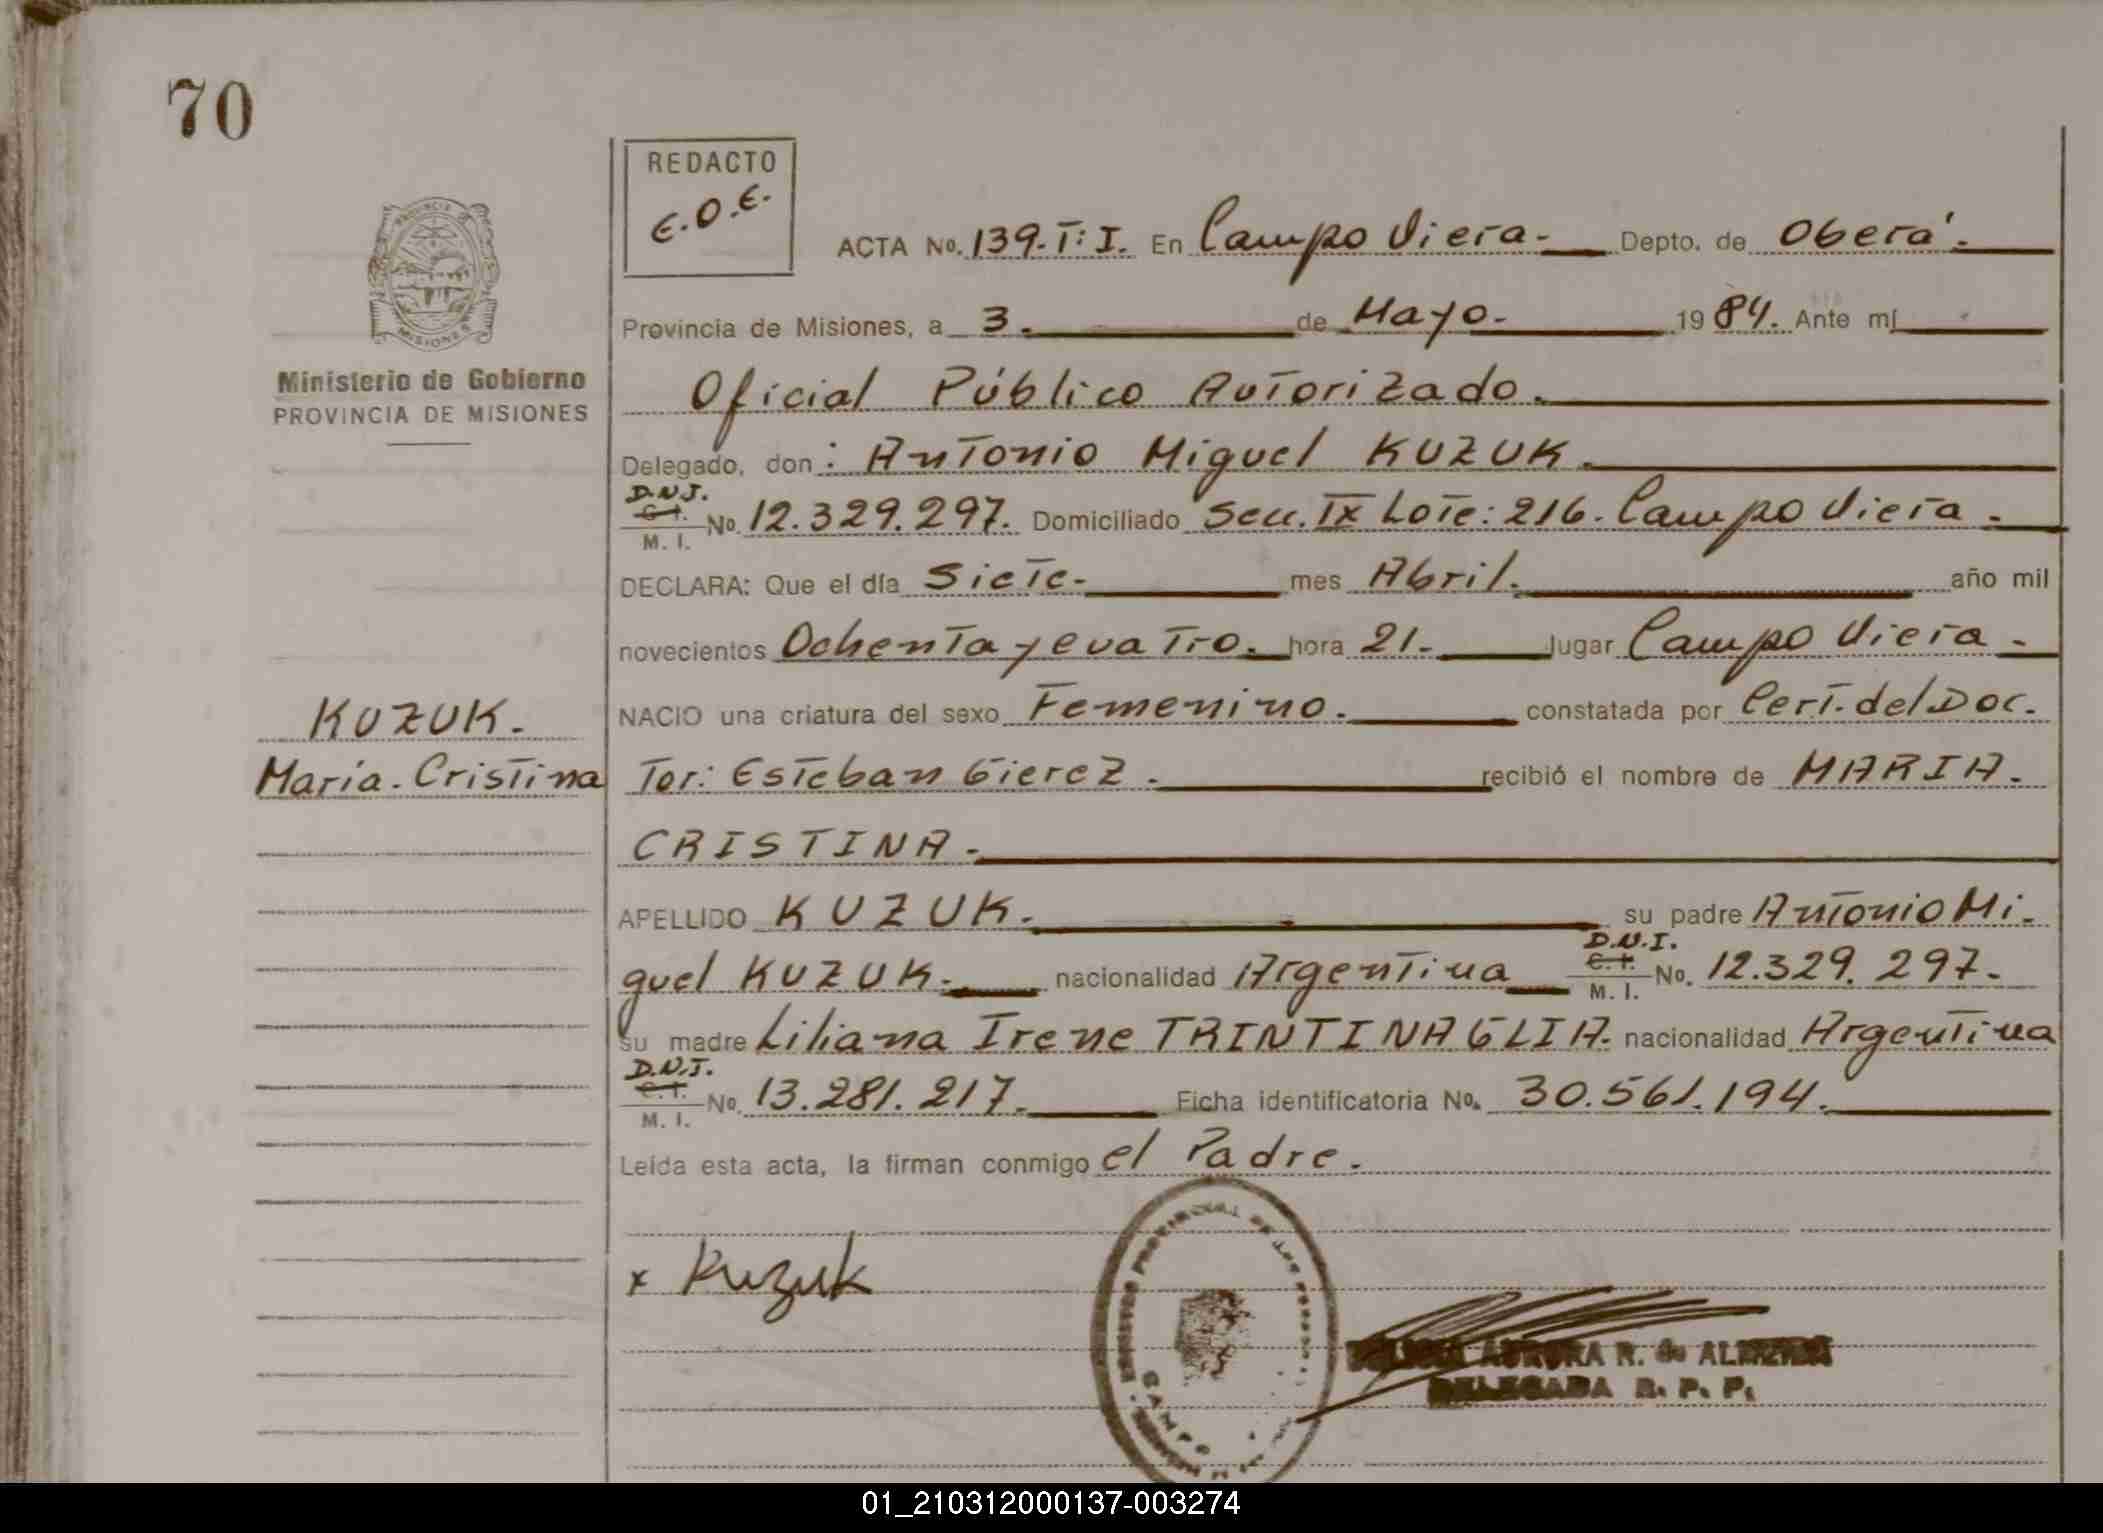 70
REDACTO
E.O.E.
ACTA No. 139.T:I. En Campo Viera.- Depto. de Oberá.
PROVINCIA DE
MISIONES
Provincia de Misiones, a 3. de Mayo. 1984. Ante mí
Ministerio de Gobierno
PROVINCIA DE MISIONES
Oficial Público Autorizado.
Delegado, don: Antonio Miguel KUZUK.
D.N.I.
C. I.
M. I. No. 12.329.297. Domiciliado Secc. IX Lote: 216. Campo Viera.
DECLARA: Que el día Siete. mes Abril. año mil
novecientos Ochenta y cuatro. hora 21. lugar Campo Viera.
KUZUK.
NACIO una criatura del sexo Femenino. constatada por Cert. del Doc.
Maria. Cristina
Tor: Esteban Gierez. recibió el nombre de MARIA.
CRISTINA.
APELLIDO KUZUK. su padre Antonio Mi.
guel KUZUK. nacionalidad Argentina D.N.I.
C. I.
M. I. No. 12.329.297.
su madre Liliana Irene TRINTINAGLIA. nacionalidad Argentina
D.N.I.
C. I.
M. I. No. 13.281.217. Ficha identificatoria No. 30.561.194.
Leída esta acta, la firman conmigo el Padre.
x Kuzuk
REGISTRO PROVINCIAL DE LAS
CAMPO
AURORA R. de
DELEGADA R. P. P.
01_210312000137-003274